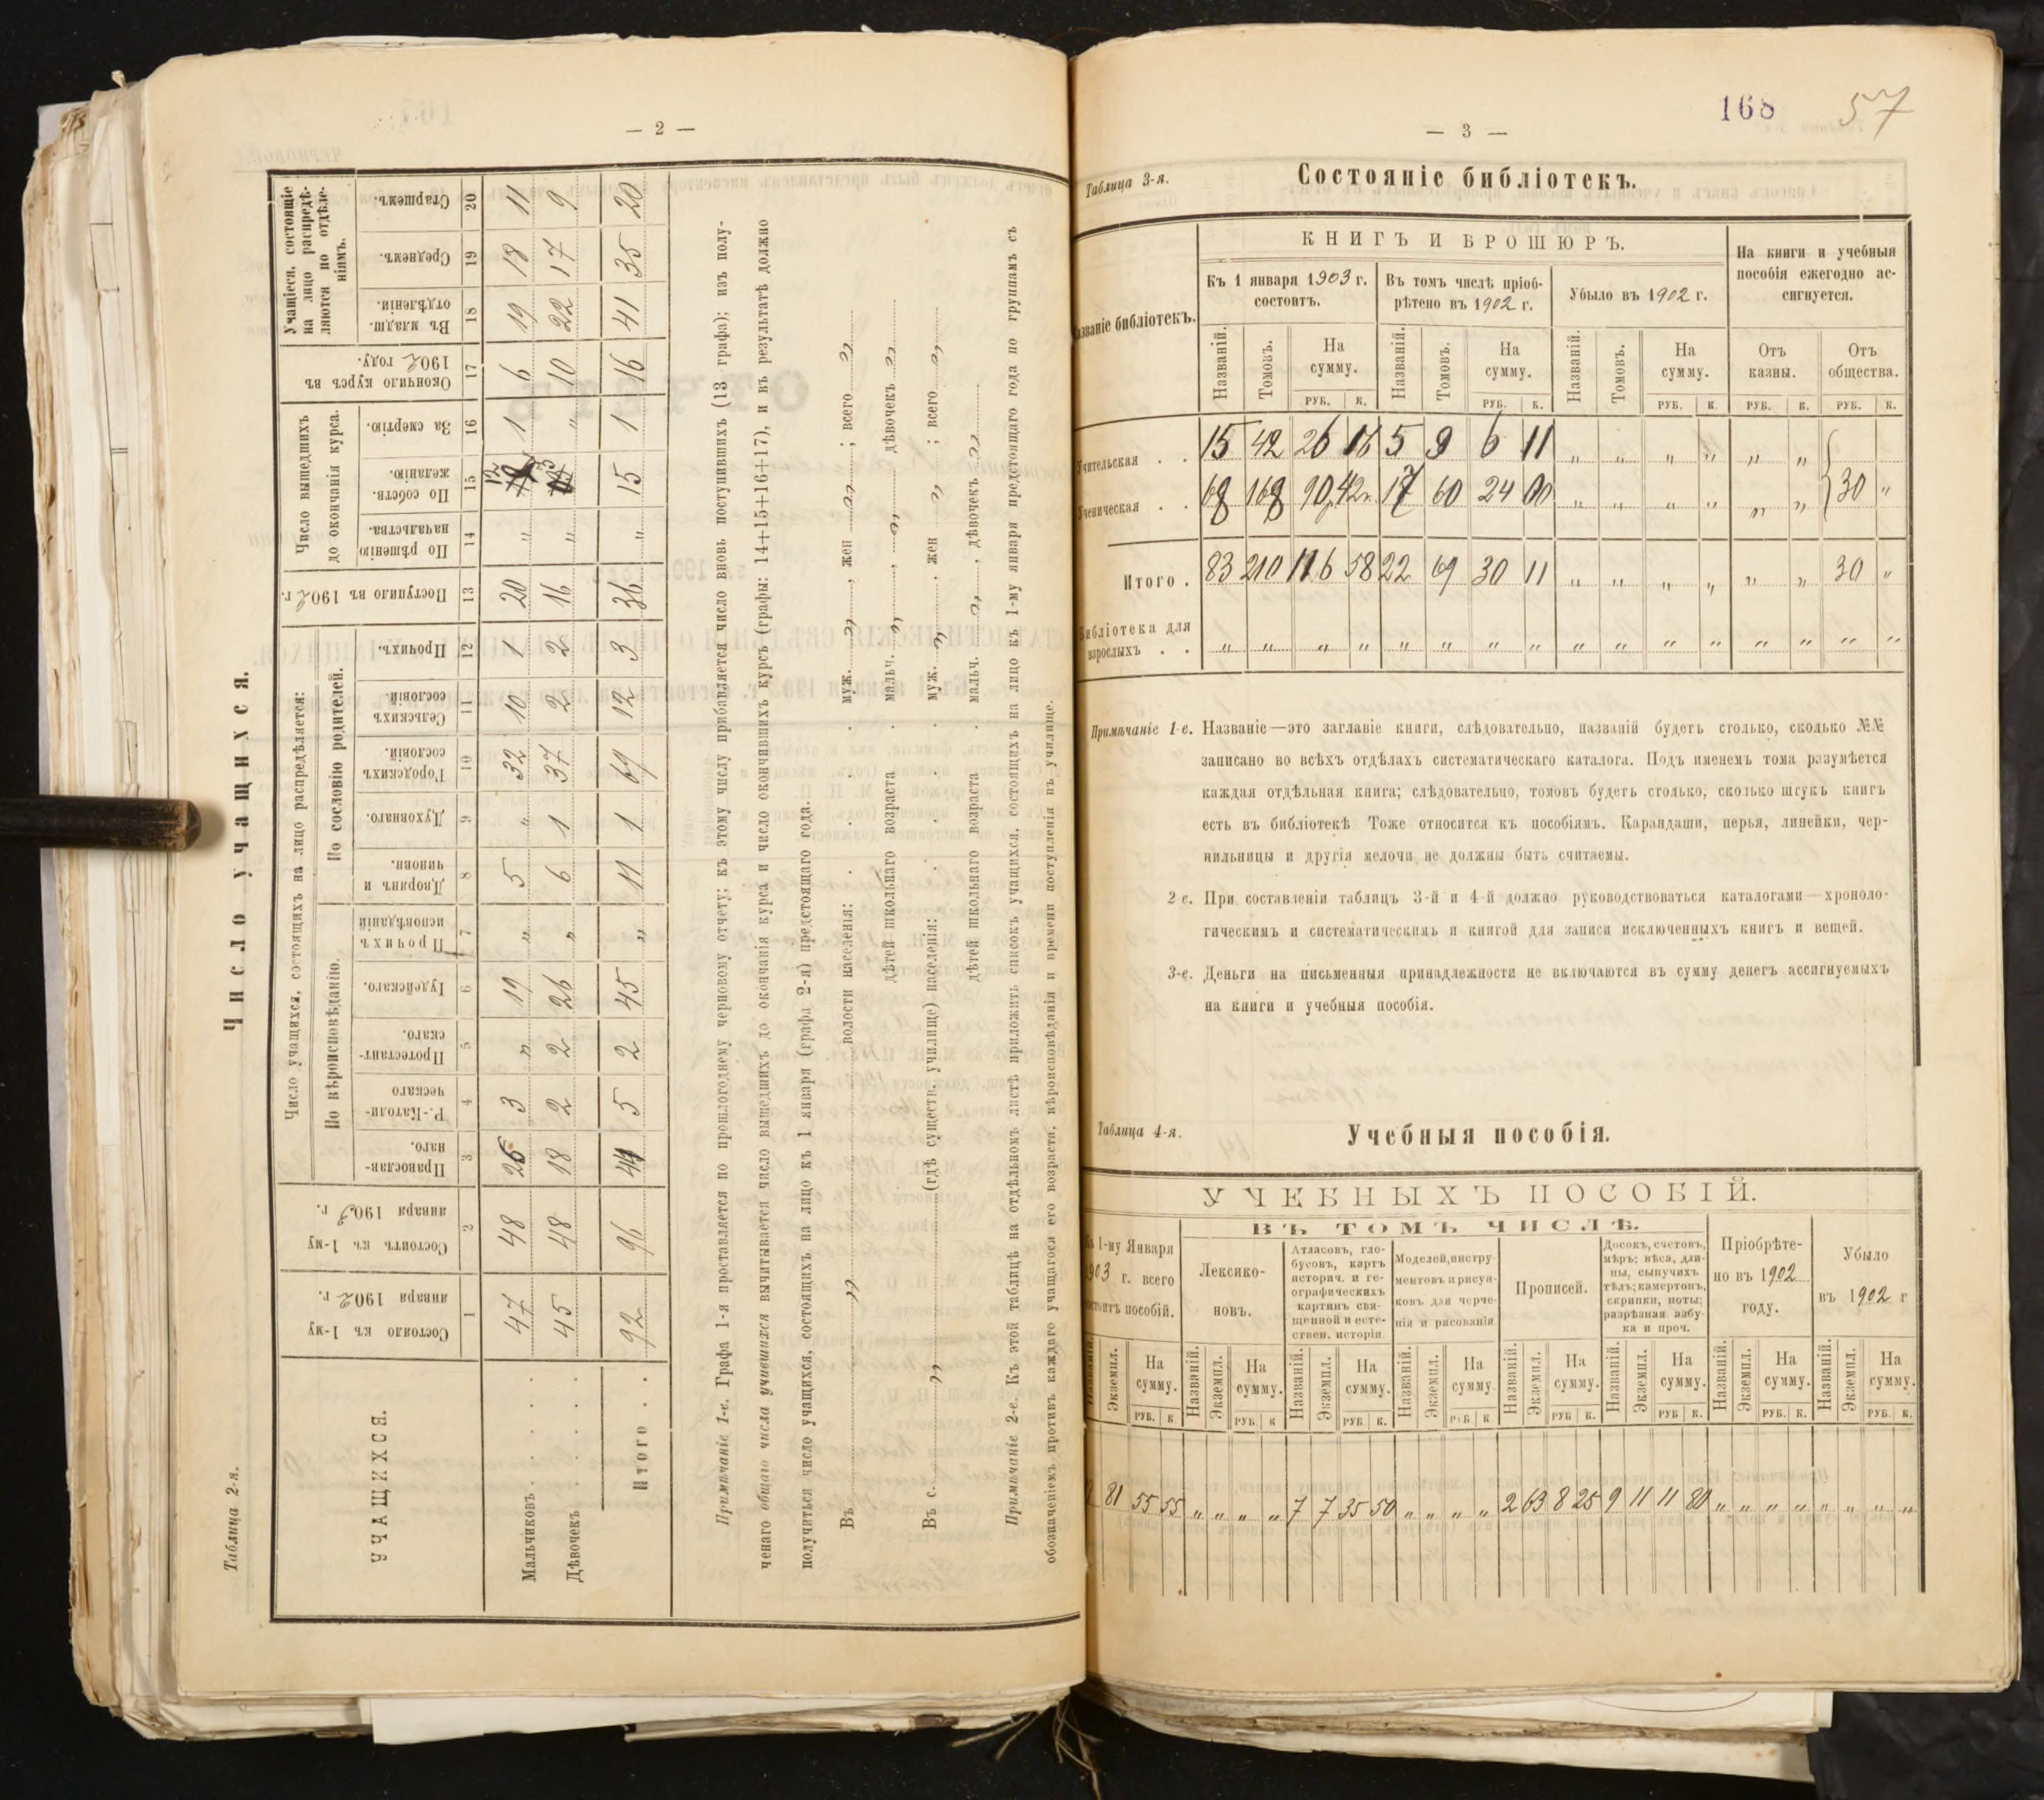 — 2 —
Таблица 2-я.
Число учащихся.
УЧАЩИХСЯ.
Состояло къ 1-му января 1902 г.
Состоитъ къ 1-му января 1903 г.
Число учащихся, состоящихъ на лицо распредѣляется:
По вѣроисповѣданію.
По сословію родителей.
Православнаго.
Р.-Католическаго
Протестантскаго.
Іудейскаго.
Прочихъ исповѣданій
Дворянъ и чиновн.
Духовнаго.
Городскихъ сословій.
Сельскихъ сословій.
Прочихъ.
Поступило въ 1902 г.
Число вышедшихъ до окончанія курса.
По рѣшенію начальства.
По собств. желанію.
За смертію.
Окончило курсъ въ 1902 году.
Учащіеся, состоящіе на лицо распредѣляются по отдѣленіямъ.
Въ младш. отдѣленіи.
Среднемъ.
Старшемъ.
1 2 3 4 5 6 7 8 9 10 11 12 13 14 15 16 17 18 19 20
Мальчиковъ 47 48 26 3 „ 19 „ 5 „ 32 10 1 20 „ 12 1 6 19 18 11
Дѣвочекъ 45 48 18 2 2 26 „ 6 1 37 2 2 16 „ 3 „ 10 22 17 9
Итого 92 96 44 5 2 45 „ 11 1 69 12 3 36 „ 15 1 16 41 35 20
Примѣчаніе 1-е. Графа 1-я проставляется по прошлогоднему черновому отчету; къ этому числу прибавляется число вновь поступившихъ (13 графа); изъ полу-
ченаго общаго числа учившихся вычитывается число вышедшихъ до окончанія курса и число окончившихъ курсъ (графы: 14+15+16+17), и въ результатѣ должно
получиться число учащихся, состоящихъ на лицо къ 1 января (графа 2-я) предстоящаго года.
Въ „ волости населенія: муж. „, жен „; всего „
дѣтей школьнаго возраста мальч. „, „, дѣвочекъ „
Въ с. „ (гдѣ существ. училище) населенія: муж. „, жен „; всего „
дѣтей школьнаго возраста мальч. „, дѣвочекъ „
Примѣчаніе 2-е. Къ этой таблицѣ на отдѣльномъ листѣ приложить списокъ учащихся, состоящихъ на лицо къ 1-му января предстоящаго года по группамъ съ
обозначеніемъ противъ каждаго учащагося его возраста, вѣроисповѣданія и времени поступленія въ училище.
168 57
— 3 —
Таблица 3-я.
Состояніе библіотекъ.
Названіе библіотекъ.
КНИГЪ И БРОШЮРЪ.
Къ 1 января 1903 г. состоитъ.
Въ томъ числѣ пріобрѣтено въ 1902 г.
Убыло въ 1902 г.
На книги и учебныя пособія ежегодно ассигнуется.
Названій. Томовъ. На сумму. Названій. Томовъ. На сумму. Названій. Томовъ. На сумму. Отъ казны. Отъ общества.
РУБ. К. РУБ. К. РУБ. К. РУБ. К. РУБ. К.
Учительская . . 15 42 26 16 5 9 6 11 „ „ „ „ „ „
Ученическая . . 68 168 90 42 17 60 24 00 „ „ „ „ „ „ 30 „
Итого . 83 210 116 58 22 69 30 11 „ „ „ „ „ „ 30 „
Библіотека для
взрослыхъ . . „ „ „ „ „ „ „ „ „ „ „ „ „ „ „ „
Примѣчаніе 1-е. Названіе—это заглавіе книги, слѣдовательно, названій будетъ столько, сколько №№
записано во всѣхъ отдѣлахъ систематическаго каталога. Подъ именемъ тома разумѣется
каждая отдѣльная книга; слѣдовательно, томовъ будетъ столько, сколько штукъ книгъ
есть въ библіотекѣ Тоже относится къ пособіямъ. Карандаши, перья, линейки, чер-
нильницы и другія мелочи не должны быть считаемы.
2 е. При составленіи таблицъ 3-й и 4-й должно руководствоваться каталогами—хроноло-
гическимъ и систематическимъ и книгой для записи исключенныхъ книгъ и вещей.
3-е. Деньги на письменныя принадлежности не включаются въ сумму денегъ ассигнуемыхъ
на книги и учебныя пособія.
Таблица 4-я.
Учебныя пособія.
УЧЕБНЫХЪ ПОСОБІЙ.
ВЪ ТОМЪ ЧИСЛѢ.
1-му Января 1903 г. всего состоитъ пособій.
Лексиконовъ.
Атласовъ, глобусовъ, картъ историч. и географическихъ картинъ священной и естествен. исторіи
Моделей, инструментовъ и рисунковъ для черченія и рисованія
Прописей.
Досокъ, счетовъ, мѣръ: вѣса, длины, сыпучихъ тѣлъ; камертонъ, скрипки, ноты; разрѣзная азбука и проч.
Пріобрѣтено въ 1902 году.
Убыло въ 1902 г
Экземпл. На сумму. Названій. Экземпл. На сумму. Названій. Экземпл. На сумму. Названій. Экземпл. На сумму. Названій. Экземпл. На сумму. Названій. Экземпл. На сумму. Названій. Экземпл. На сумму. Названій. Экземпл. На сумму.
РУБ. К РУБ К РУБ К. РУБ К РУБ К. РУБ К. РУБ. К. РУБ. К.
81 55 55 „ „ „ „ 7 7 35 50 „ „ „ „ 2 63 8 25 9 11 11 80 „ „ „ „ „ „ „ „